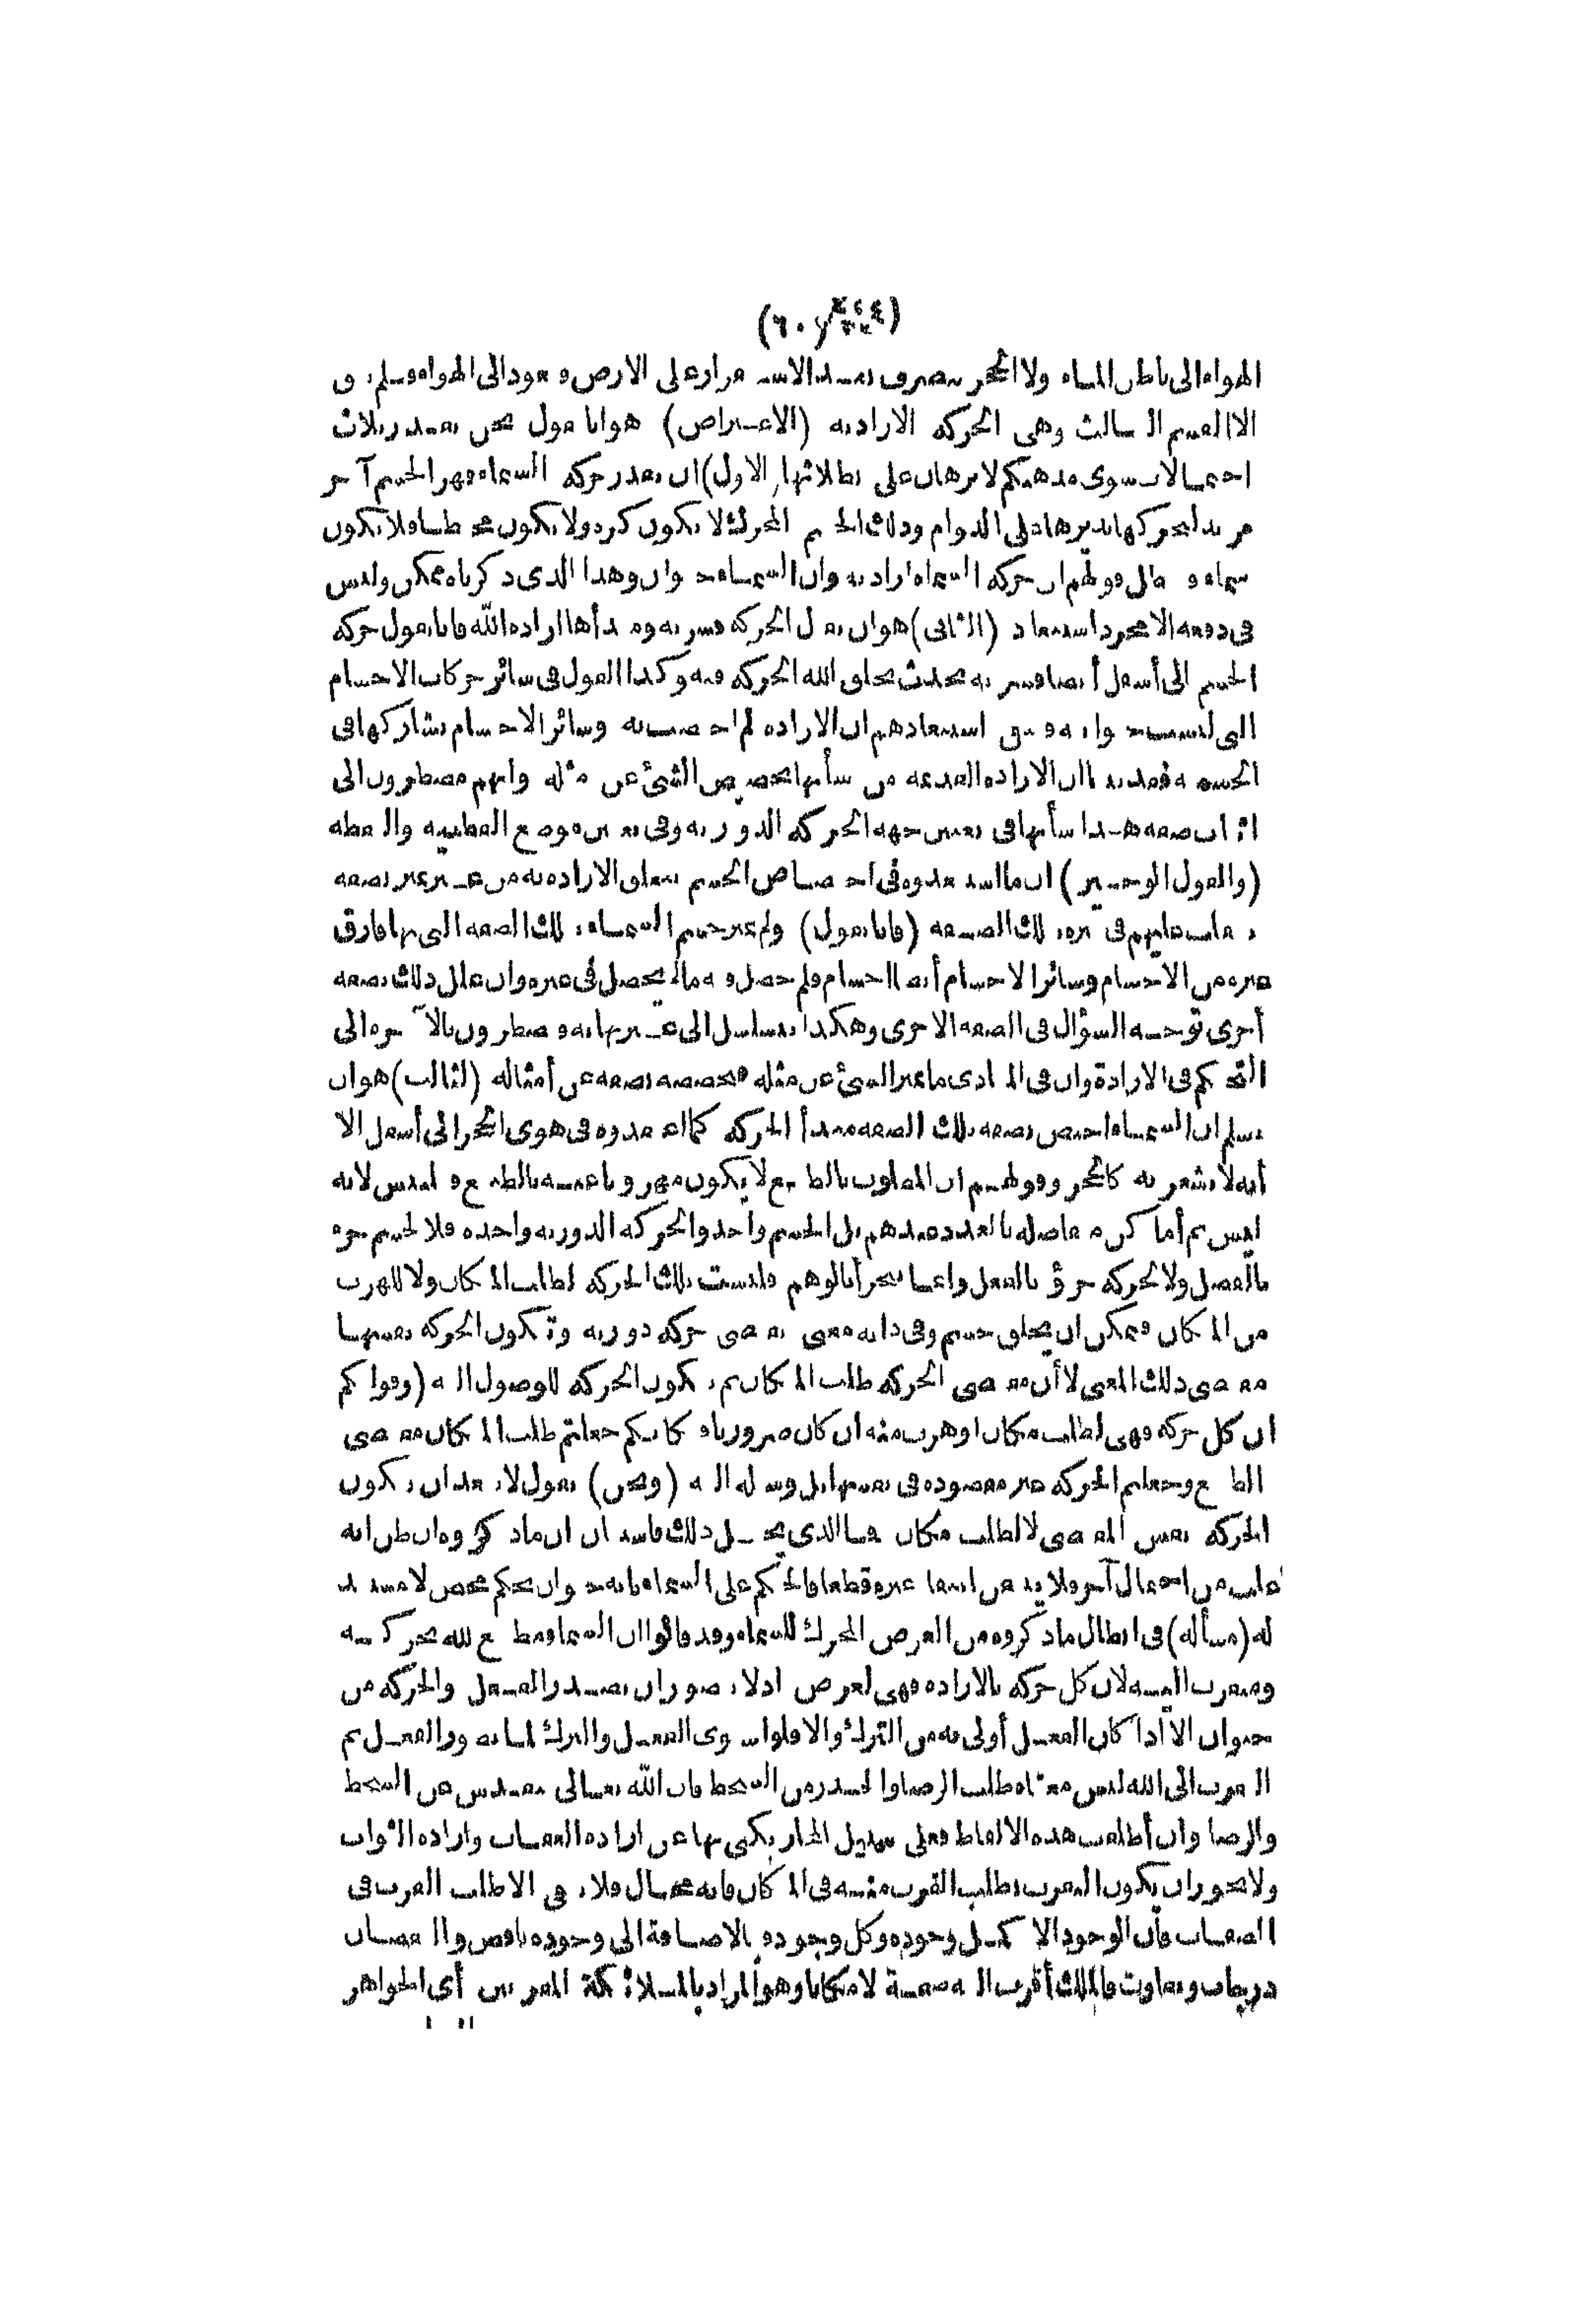 (٦٠)
الهواء الى باطن الماء ولا الحجر ينصرف بعد الاستقرار على الارض فيعود الى الهواء فلم يبق
الا القسم الثالث وهى الحركة الارادية (الاعتراض) هو انا نقول نحن نقدر ثلاث
احتمالات سوى مذهبكم لا برهان على بطلانها (الاول) ان يقدر حركة السماء قهرا لجسم آخر
مريد لحركتها يديرها على الدوام وذلك الجسم المحرك لا يكون كرة ولا يكون محيطا فلا يكون
سماء فيبطل قولهم ان حركة السماء ارادية وان السماء حيوان وهذا الذى ذكرناه ممكن وليس
فى دفعه الا مجرد استبعاد (الثانى) هو ان يقال الحركة قسرية ومبدأها ارادة الله فانا نقول حركة
الجسم الى أسفل أيضا قسرية يحدث بخلق الله الحركة فيه وكذا القول فى سائر حركات الاجسام
التى ليست حيوانية فيبقى استبعادهم ان الارادة لم اختصت به وسائر الاجسام تشاركها فى
الجسمية فقد بينا ان الارادة القديمة من شأنها تخصيص الشئ عن مثله وانهم مضطرون الى
اثبات صفة هذا شأنها فى تعيين جهة الحركة الدورية وفى تعيين موضع القطبين والنقطة
(والقول الوجيز) ان ما استبعدوه فى اختصاص الجسم بتعلق الارادة به من غير تميز بصفة
ينقلب عليهم فى تميزه بتلك الصفة (فانا نقول) ولم تميز جسم السماء بتلك الصفة التى بها فارق
غيره من الاجسام وسائر الاجسام أيضا أجسام فلم حصل فيه ما لم يحصل فى غيره وان علل ذلك بصفة
أخرى توجه السؤال فى الصفة الاخرى وهكذا يتسلسل الى غير نهاية فيضطرون بالآخرة الى
التحكم فى الارادة وان فى المبادى ما يميز الشئ عن مثله فيخصصه بصفة عن أمثاله (الثالث) هو ان
نسلم ان السماء اختص بصفة تلك الصفة مبدأ الحركة كما اعتقدوه فى هوى الحجر الى أسفل الا
أنه لا يشعر به كالحجر وقولهم ان المطلوب بالطبع لا يكون مهروبا عنه بالطبع فتلبيس لانه
ليس ثم أماكن متفاصلة بالعدد عندهم بل الجسم واحد والحركة الدورية واحدة فلا لجسم جزء
بالفصل ولا للحركة جزؤ بالفعل وانما تتجزأ بالوهم فليست تلك الحركة لطلب المكان ولا للهرب
من المكان فيمكن ان يخلق جسم وفى ذاته معنى يقتضى حركة دورية وتكون الحركة نفسها
مقتضى ذلك المعنى لا أن مقتضى الحركة طلب المكان ثم تكون الحركة للوصول اليه (وقولكم
ان كل حركة فهى لطلب مكان أو هرب منه ان كان ضروريا فكانكم جعلتم طلب المكان مقتضى
الطبع وجعلتم الحركة غير مقصودة فى نفسها بل وسيلة اليه (ونحن) نقول لا يبعد ان تكون
الحركة نفس المقتضى لا لطلب مكان فما الذى يحيل ذلك فاستبان ان ما ذكروه ان ظن انه
أغلب من احتمال آخر فلا يتيقن انتفاء غيره قطعا فالحكم على السماء بانه حيوان تحكم محض لا مستند
له (مسألة) فى ابطال ما ذكروه من الغرض المحرك للسماء وقد قالوا ان السماء مطيع لله بحركته
ومتقرب اليه لان كل حركة بالارادة فهى لغرض اذ لا يتصور ان يصدر الفعل والحركة من
حيوان الا اذا كان الفعل أولى به من الترك والا فلو استوى الفعل والترك لما تصور الفعل ثم
التقرب الى الله ليس معناه طلب الرضا والحذر من السخط فان الله تعالى يتقدس عن السخط
والرضا وان أطلقت هذه الالفاظ فعلى سبيل المجاز يكنى بها عن ارادة العقاب وارادة الثواب
ولا يجوز ان يكون التقرب بطلب القرب منه فى المكان فانه محال فلا يبقى الا طلب القرب فى
الصفات فان الوجود الاكمل وجوده وكل وجود فبالاضافة الى وجوده ناقص وللنقصان
درجات وتفاوت فالملك أقرب اليه صفة لا مكانا وهو المراد بالملائكة المقربين أى الجواهر